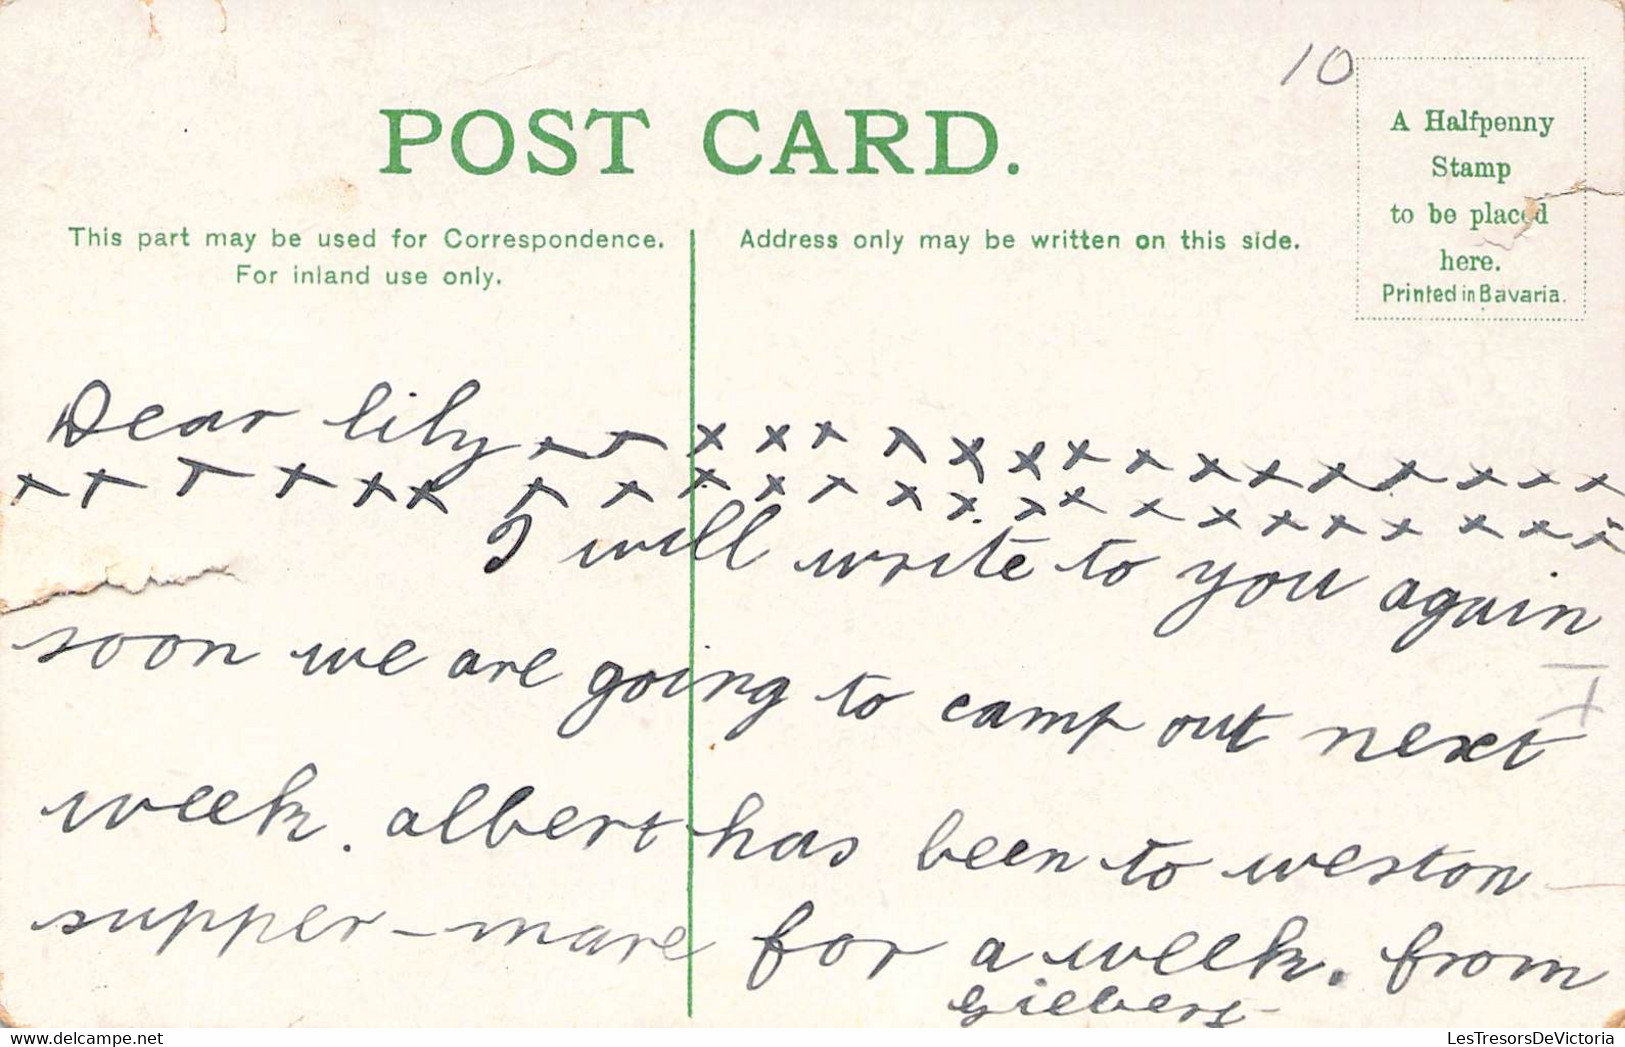 10
POST CARD.
A Halfpenny
Stamp
to be placed
here.
Printed in Bavaria.
This part may be used for Correspondence.
For inland use only.
Address only may be written on this side.
Dear lily x x x x x x x x x x x x x x x x x x
x x x x x x x x x x x x x x x x x x x x x x x
I will write to you again
soon we are going to camp out next
week. albert has been to weston
supper-mare for a week. from
Gilbert
LesTresorsDeVictoria